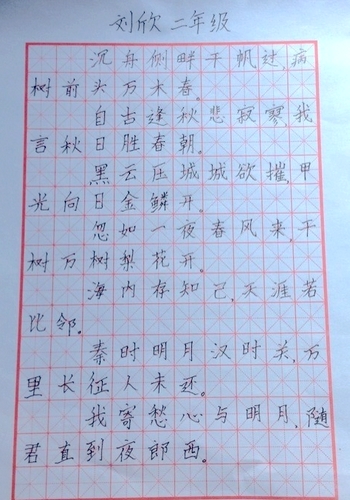 刘欣 二年级
沉舟侧畔千帆过,病
树前头万木春。
自古逢秋悲寂寥,我
言秋日胜春朝。
黑云压城城欲摧,甲
光向日金鳞开。
忽如一夜春风来,千
树万树梨花开。
海内存知己,天涯若
比邻。
秦时明月汉时关,万
里长征人未还。
我寄愁心与明月,随
君直到夜郎西。